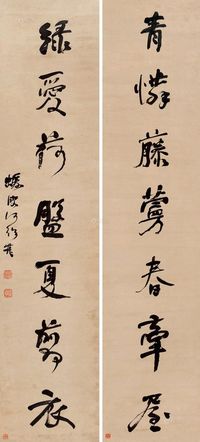 青憐藤蔓春牽屋
綠愛荷盤夏翦衣
蝯叟何紹基